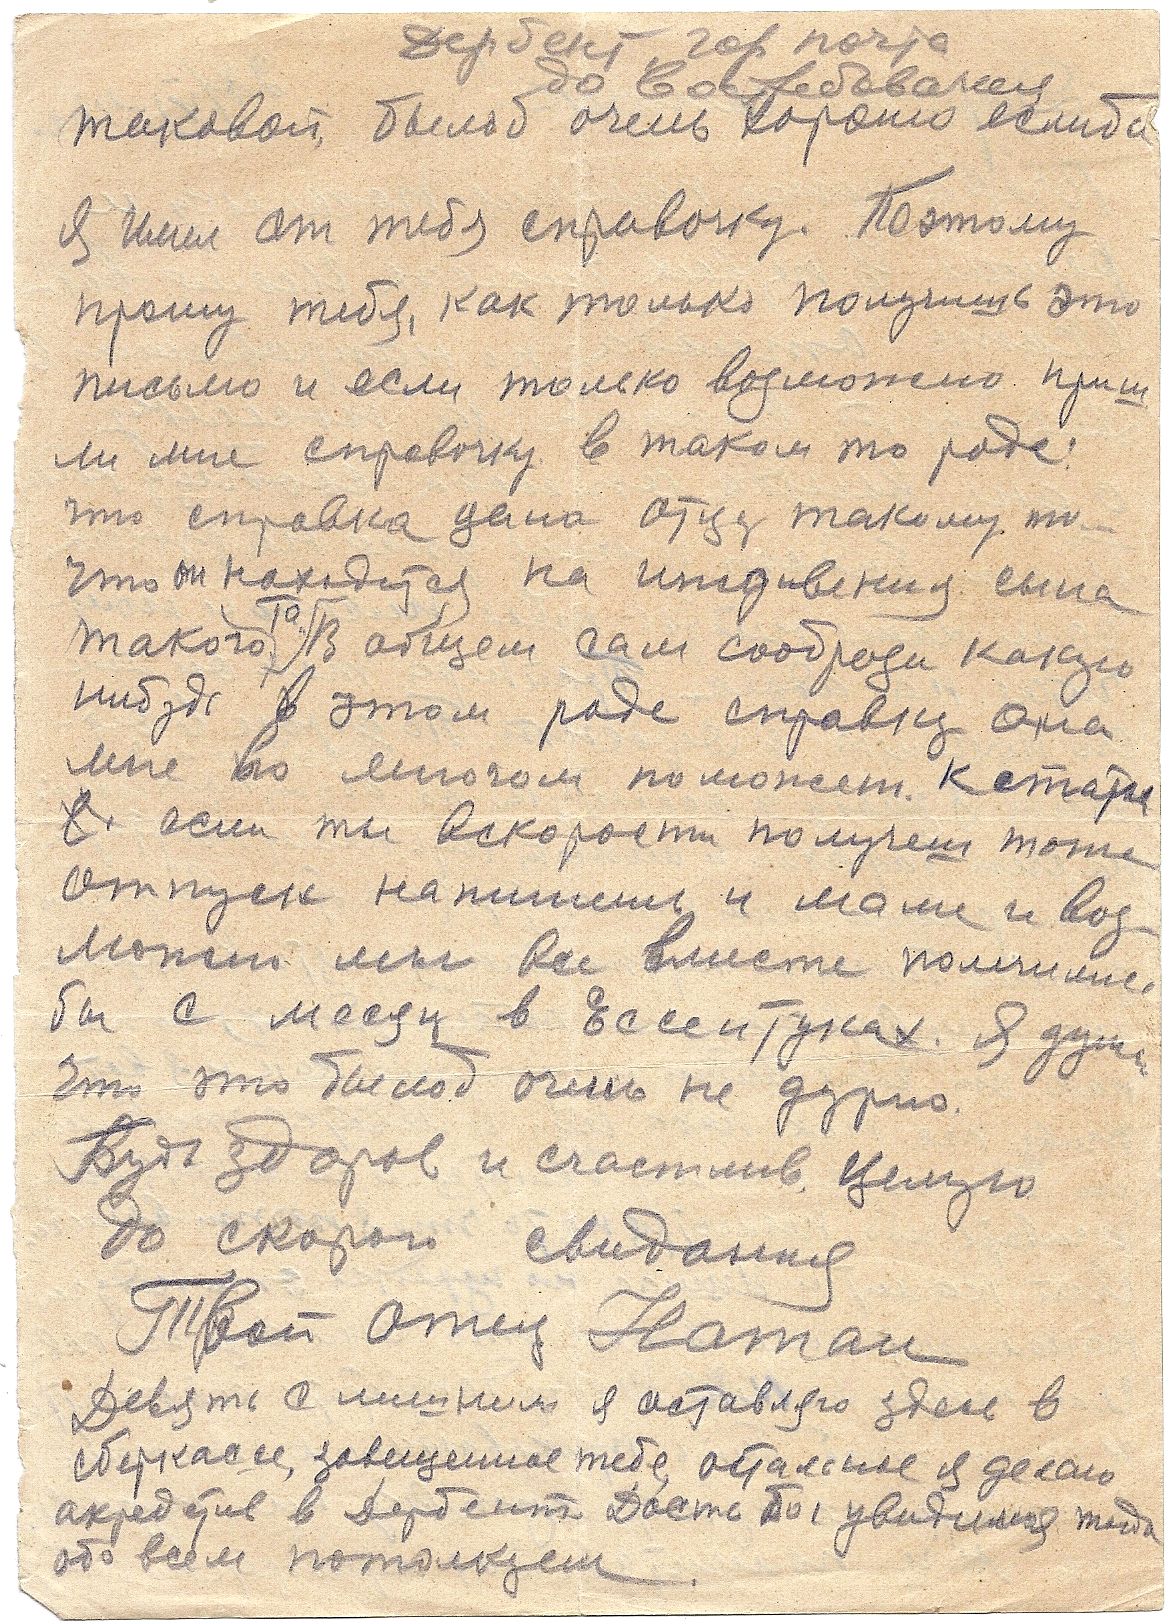 Дербент, гор почта
до Востребования
таковой, былоб очень хорошо еслиба
я имел от тебя справочку. Поэтому
прошу тебя, как только получишь это
письмо и если только возможно приш
ли мне справочку в таком то роде:
что справка дана отцу такому то-
что он находится на иждивении сына
такого то. В общем сам сообрази какую
нибудь в этом роде справку она
мне во многом поможет. К стати
если ты вскорости получеш тоже
отпуск напишеш и маме и воз-
можно мы все вместе полечились
бы с месяц в Ессентуках. Я думаю
что это былоб очень не дурно.
Будь здоров и счастлив. Целую
До скорого свидания
Твой отец Натан
Девять с лишним я оставляю здесь в
сберкассе, завещенное тебе, остальное я делаю
акредетив в Дербент. Даст бог увидимся тогда
обо всем потолкуем.